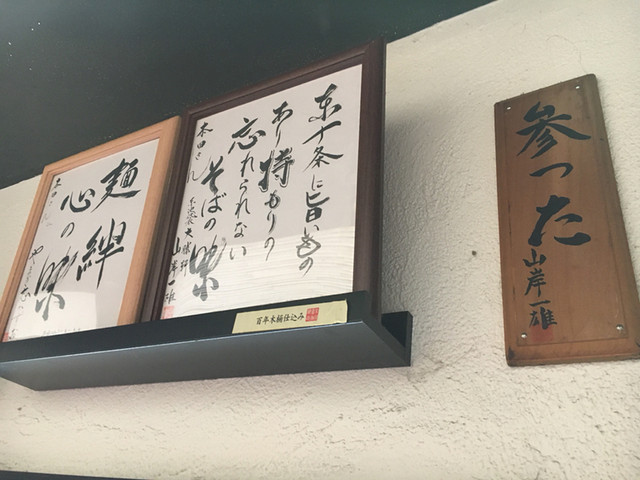 参った
山岸一雄
東十条に旨いもの
あり持もりの
忘れられない
そばの味
本田さん
東池袋大勝軒
山岸一雄
麺絆
心の味
百年木桶仕込み